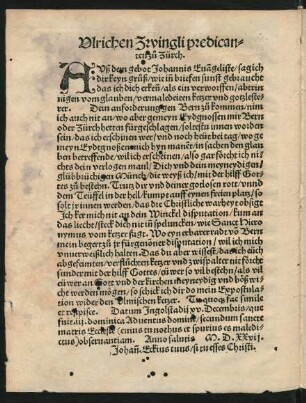 Vlrichen Zwingli predican-
ten zů Zürch.
AVß dem gebot Johannis Euāgeliste / sag ich
dir keyn grůß / wie in briefen sunst gebraucht
das ich dich erkēn / als ein verworffen / abtrin
nigen vom glauben / vermaledeiten ketzer vnd gotzleste-
rer. Dein anforderung gen Bern zů kommen / nim
ich auch nit an / wo aber gemeyn Eydgnossen mir Bern
oder Zürch herren fürgschlagen / solt es in vnnot worden
sein / das ich erschinen wer / vnd noch heüt bei tag / wo ge
meyn Eydgnoßen mich hyn manēt / in sachen den glau
ben betreffende / wil ich erschinen / also gar förcht ich nit
nichts dein verlognen maul / Dich vnd dein meyneydigen /
glübbrüchigen Münch / die weyß ich / mit der hilff Got-
tes zů bestehn. Trutz dir vnd deiner gotlosen rott / vnnd
dem Teüffel in der hell / kumpt auff eynen freien platz / so
solt jr innen werden / das die Christliche warheyt obsigt
Ich ker mich nit an dein Winckel disputation / kum an
das liecht / sterck dich nit in spelüncken / wie Sanct Hiero
nymus vom ketzer sagt. Wo eyn erbarer rad zů Bern
mein begert zů jr fürgenōmer disputation / wil ich mich
vnuerweißlich halten. Das du aber wissest / das ich euch
abgefeimten / verflüchten ketzer vnd zwispalter nit förcht
sunder mit der hilff Gottes / eüwer so vil bestehn / als vil
eüwer an Gott vnd der kirchen meyneydig vnd bößwi-
cht werden mögen / so schick ich dir do mein Expostula-
tion wider den Vlmischen ketzer. Tu quoq; fac simile
et respisce. Datum Ingolstadij xv. Decembris / que
finit aij. dominica Aduentus domini / secundum sancte
matris Ecclesie (cuius tu nothus et spurius es maledi-
ctus) obseruantiam. Anno salutis M. D. XXvij.
Johañ. Eckius tuus / si tu esses Christi.